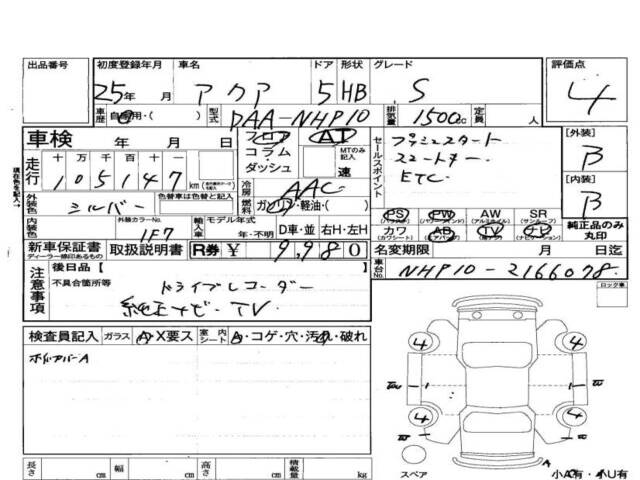 出品番号 初度登録年月 車名 ドア 形状 グレード 評価点
25年 月 アクア 5 HB S 4
車歴 自家用・( ) 型式 DAA-NHP10 排気量 1500cc 定員 人
車検 年 月 日 フロア AT セールスポイント プッシュスタート [外装]
走行 十 万 千 百 十 一 コラム MTのみ記入 スマートキー B
105147 km ダッシュ 速 ETC [内装]
外装色 シルバー 色替車は色替と記入 冷房 AAC B
ガソリン・軽油・( ) PS PW AW SR 純正品のみ丸印
内装色 外装カラーNo. 1F7 輸入車 モデル年式 年・不明 D車・並 右H・左H カワ AB TV ナビ
新車保証書 取扱説明書 R券 ¥ 9,980 名変期限 月 日
ディーラー捺印あるもの 車台No. NHP10-2166078
注意事項 後日品[ ] ロック車
不具合箇所等 ドライブレコーダー
純正ナビ・TV
検査員記入 ガラス A・X要ス 室内シート A・コゲ・穴・汚れ・破れ
4 4
1 1
4 4
スペア A
長さ cm 幅 cm 高さ cm 積載量 kg 小A有・小U有
現在色を記入→